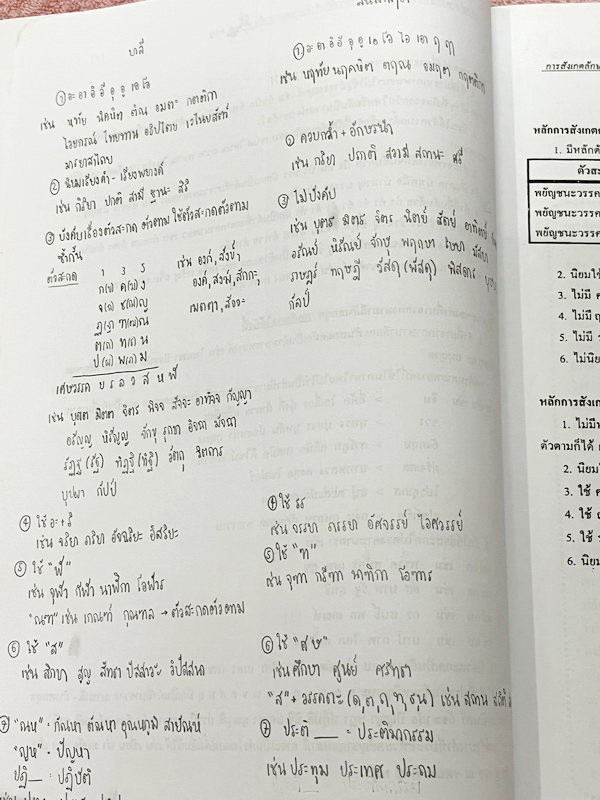 บาลี
① อะ อา อิ อี อุ อู เอ โอ
เช่น หทัย นิคหิต ติณ อมตะ กตติกา
ไอยกรณ์ ไทยทาน อธิปไตย เวไนยสัตว์
มารยาสาไถย
② นิยมเรียงคำ - เรียงพยางค์
เช่น กิริยา ปกติ สามี ฐานะ สิริ
③ บังคับเรื่องตัวสะกด ตัวตาม ใช้ตัวสะกดตัวตาม
ซ้ำกัน
ตัวสะกด
1 3 5
ก(ข) ค(ฆ) ง
จ(ฉ) ช(ฌ) ญ
ฏ(ฐ) ฑ(ฒ) ณ
ต(ถ) ท(ธ) น
ป(ผ) พ(ภ) ม
เช่น องค์, สงฆ์,
องค์, สงฆ์, สักกะ,
เมตตา, สัจจะ
เศษวรรค ย ร ล ว ส ห ฬ
เช่น บุตต มิตต จิตร นิจจ สัจจะ อาทิจจ กัญญา
อรัญญ หิรัญญ จักขุ รุกขา อิจฉา มัจฉา
รัฏฐ (รัฐ) ทิฏฐิ (ทิฐิ) วัตถุ จิตถาร
บุปผา กัปป์
④ ใช้ อะ + ริ
เช่น จริยา ภริยา อัจฉริยะ อิสริยะ
⑤ ใช้ "ฬ"
เช่น จุฬา กีฬา นาฬิกา โอฬาร
"ณฑ" เช่น เกณฑ์ กุณฑล → ตัวสะกดตัวตาม
⑥ ใช้ "ส"
เช่น สิกขา สูญ สัทธา ปัสสาวะ วิปัสสนา
⑦ "ณห" · กัณหา ตัณหา อุณหภูมิ สายัณห์
"ญห" · ปัญหา
ปฏิ__ = ปฏิบัติ
สันสกฤต
① อะ อา อิ อี อุ อู เอ โอ ไอ เอา ฤ ฤๅ
เช่น หฤทัย นฤคหิต ตฤณ อมฤต กฤตติกา
② ควบกล้ำ + อักษรนำ
เช่น กริยา ปรกติ สวามี สถานะ ศรี
③ ไม่บังคับ
เช่น บุตร มิตร จิตร นิตย์ สัตย์ อาทิตย์
อรัณย์ หิรัณย์ จักษุ พฤกษา อิษยา มัสยา
ราษฎร์ ทฤษฎี วัสดุ (พัสดุ) พิสดาร
กัลป์
④ ใช้ รร
เช่น จรรยา ภรรยา อัศจรรย์ ไอศวรรย์
⑤ ใช้ "ฑ"
เช่น จุฑา กรีฑา นาฑิกา โอฑาร
⑥ ใช้ "ศ ษ"
เช่น ศึกษา ศูนย์ ศรัทธา
"ส" + วรรคตะ (ต, ถ, ท, ธ, น) เช่น สถาน
⑦ ประติ ___ = ประติมากรรม
เช่น ประทุม ประเทศ ประถม
หลักการสังเกต
1. มีหลักตั
พยัญชนะวรรค
พยัญชนะวรรค
พยัญชนะวรรค
2. นิยมใช้
3. ไม่มี
4. ไม่มี
5. ไม่มี
6. ไม่นิย
หลักการสังเก
1. ไม่มี
ตัวตามก็ได้
2. นิยม
3. ใช้
4. ใช้
5. ใช้
6. นิยม